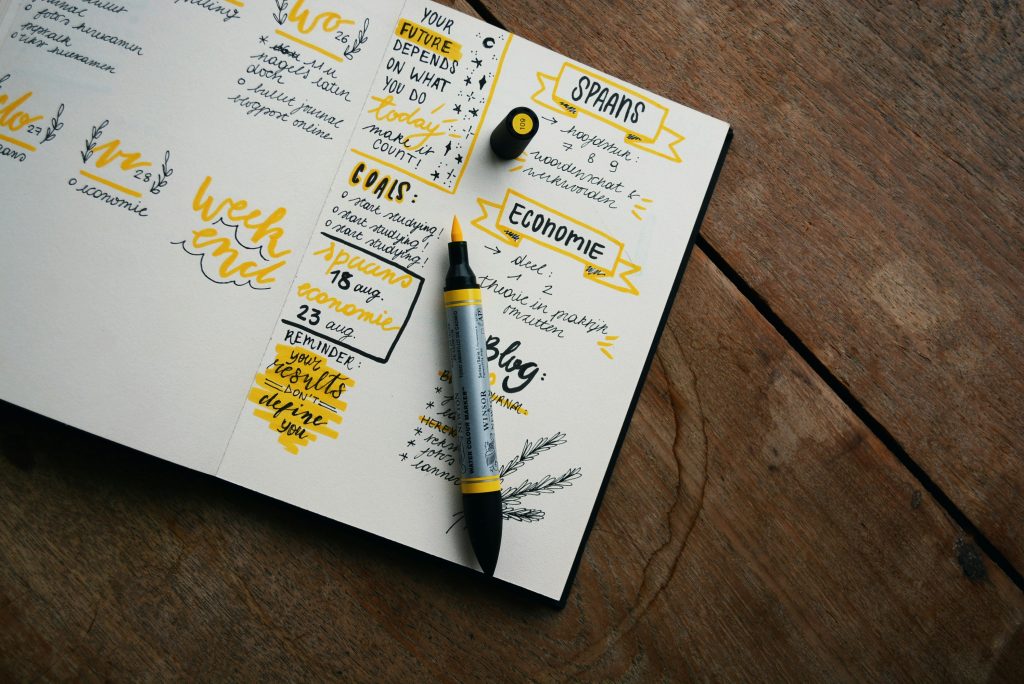 bullet
journal
o foto's herexamen
o tekst herexamen
WO 26
* MU
nagels laten
doen
o bullet journal
blogpost online
do 27
vr 28
o economie
week
end
YOUR
FUTURE
DEPENDS
ON WHAT
YOU DO
today
make it
COUNT!
GOALS:
o start studying!
o start studying!
o start studying!
spaans
18 aug.
economie
23 aug.
REMINDER:
your
results
DON'T
define
you
109
SPAANS
→ hoofdstuk:
7 8 9
woordenschat &
werkwoorden
ECONOMIE
→ deel:
1 2
theorie in praktijk
omzetten
Blog:
WINSOR
WATER COLOUR MARKER